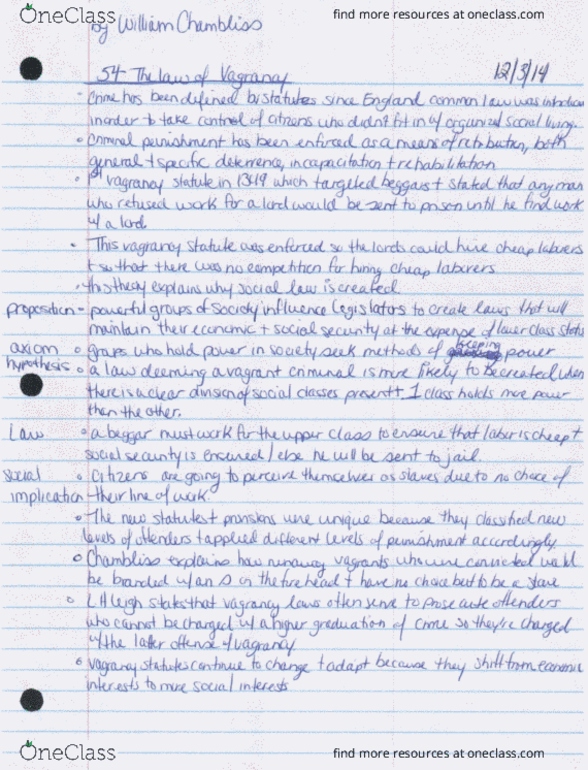 OneClass find more resources at oneclass.com
by William Chambliss
54 The law of Vagrancy 12/3/14
• Crime has been defined by statutes since England common law was
inorder to take control of citizens who didn't fit in w/ organized social living.
• Criminal punishment has been enforced as a means of retribution, both
general + specific deterrence, incapacitation + rehabilitation
• 1st vagrancy statute in 1349 which targeted beggars + stated that any man
who refused work for a lord would be sent to prison until he find work
w/ a lord.
• This vagrancy statute was enforced so the lords could hire cheap laborers
+ so that there was no competition for hiring cheap laborers
• this theory explains why social law is created
proposition - powerful groups of society influence legislators to create laws that will
maintain their economic + social security at the expense of lower class status
axiom • groups who hold power in society seek methods of keeping power
hypothesis • a law deeming a vagrant criminal is more likely to be created when
there is a clear division of social classes present + 1 class holds more power
than the other.
Law • a beggar must work for the upper class to ensure that labor is cheap +
social security is ensured / else he will be sent to jail.
social • Citizens are going to perceive themselves as slaves due to no choice of
implication - their line of work.
• The new statutes + provisions were unique because they classified new
levels of offenders + applied different levels of punishment accordingly.
• Chambliss explains how runaway vagrants who were convicted would
be branded w/ an S on the firehead + have no choice but to be a slave
• states that vagrancy laws often serve to prosecute offenders
who cannot be charged w/ a higher graduation of crime so they're charged
w/ the later offense of vagrancy
• vagrancy statutes continue to change + adapt because they shift from economic
interests to more social interests.
OneClass find more resources at oneclass.com